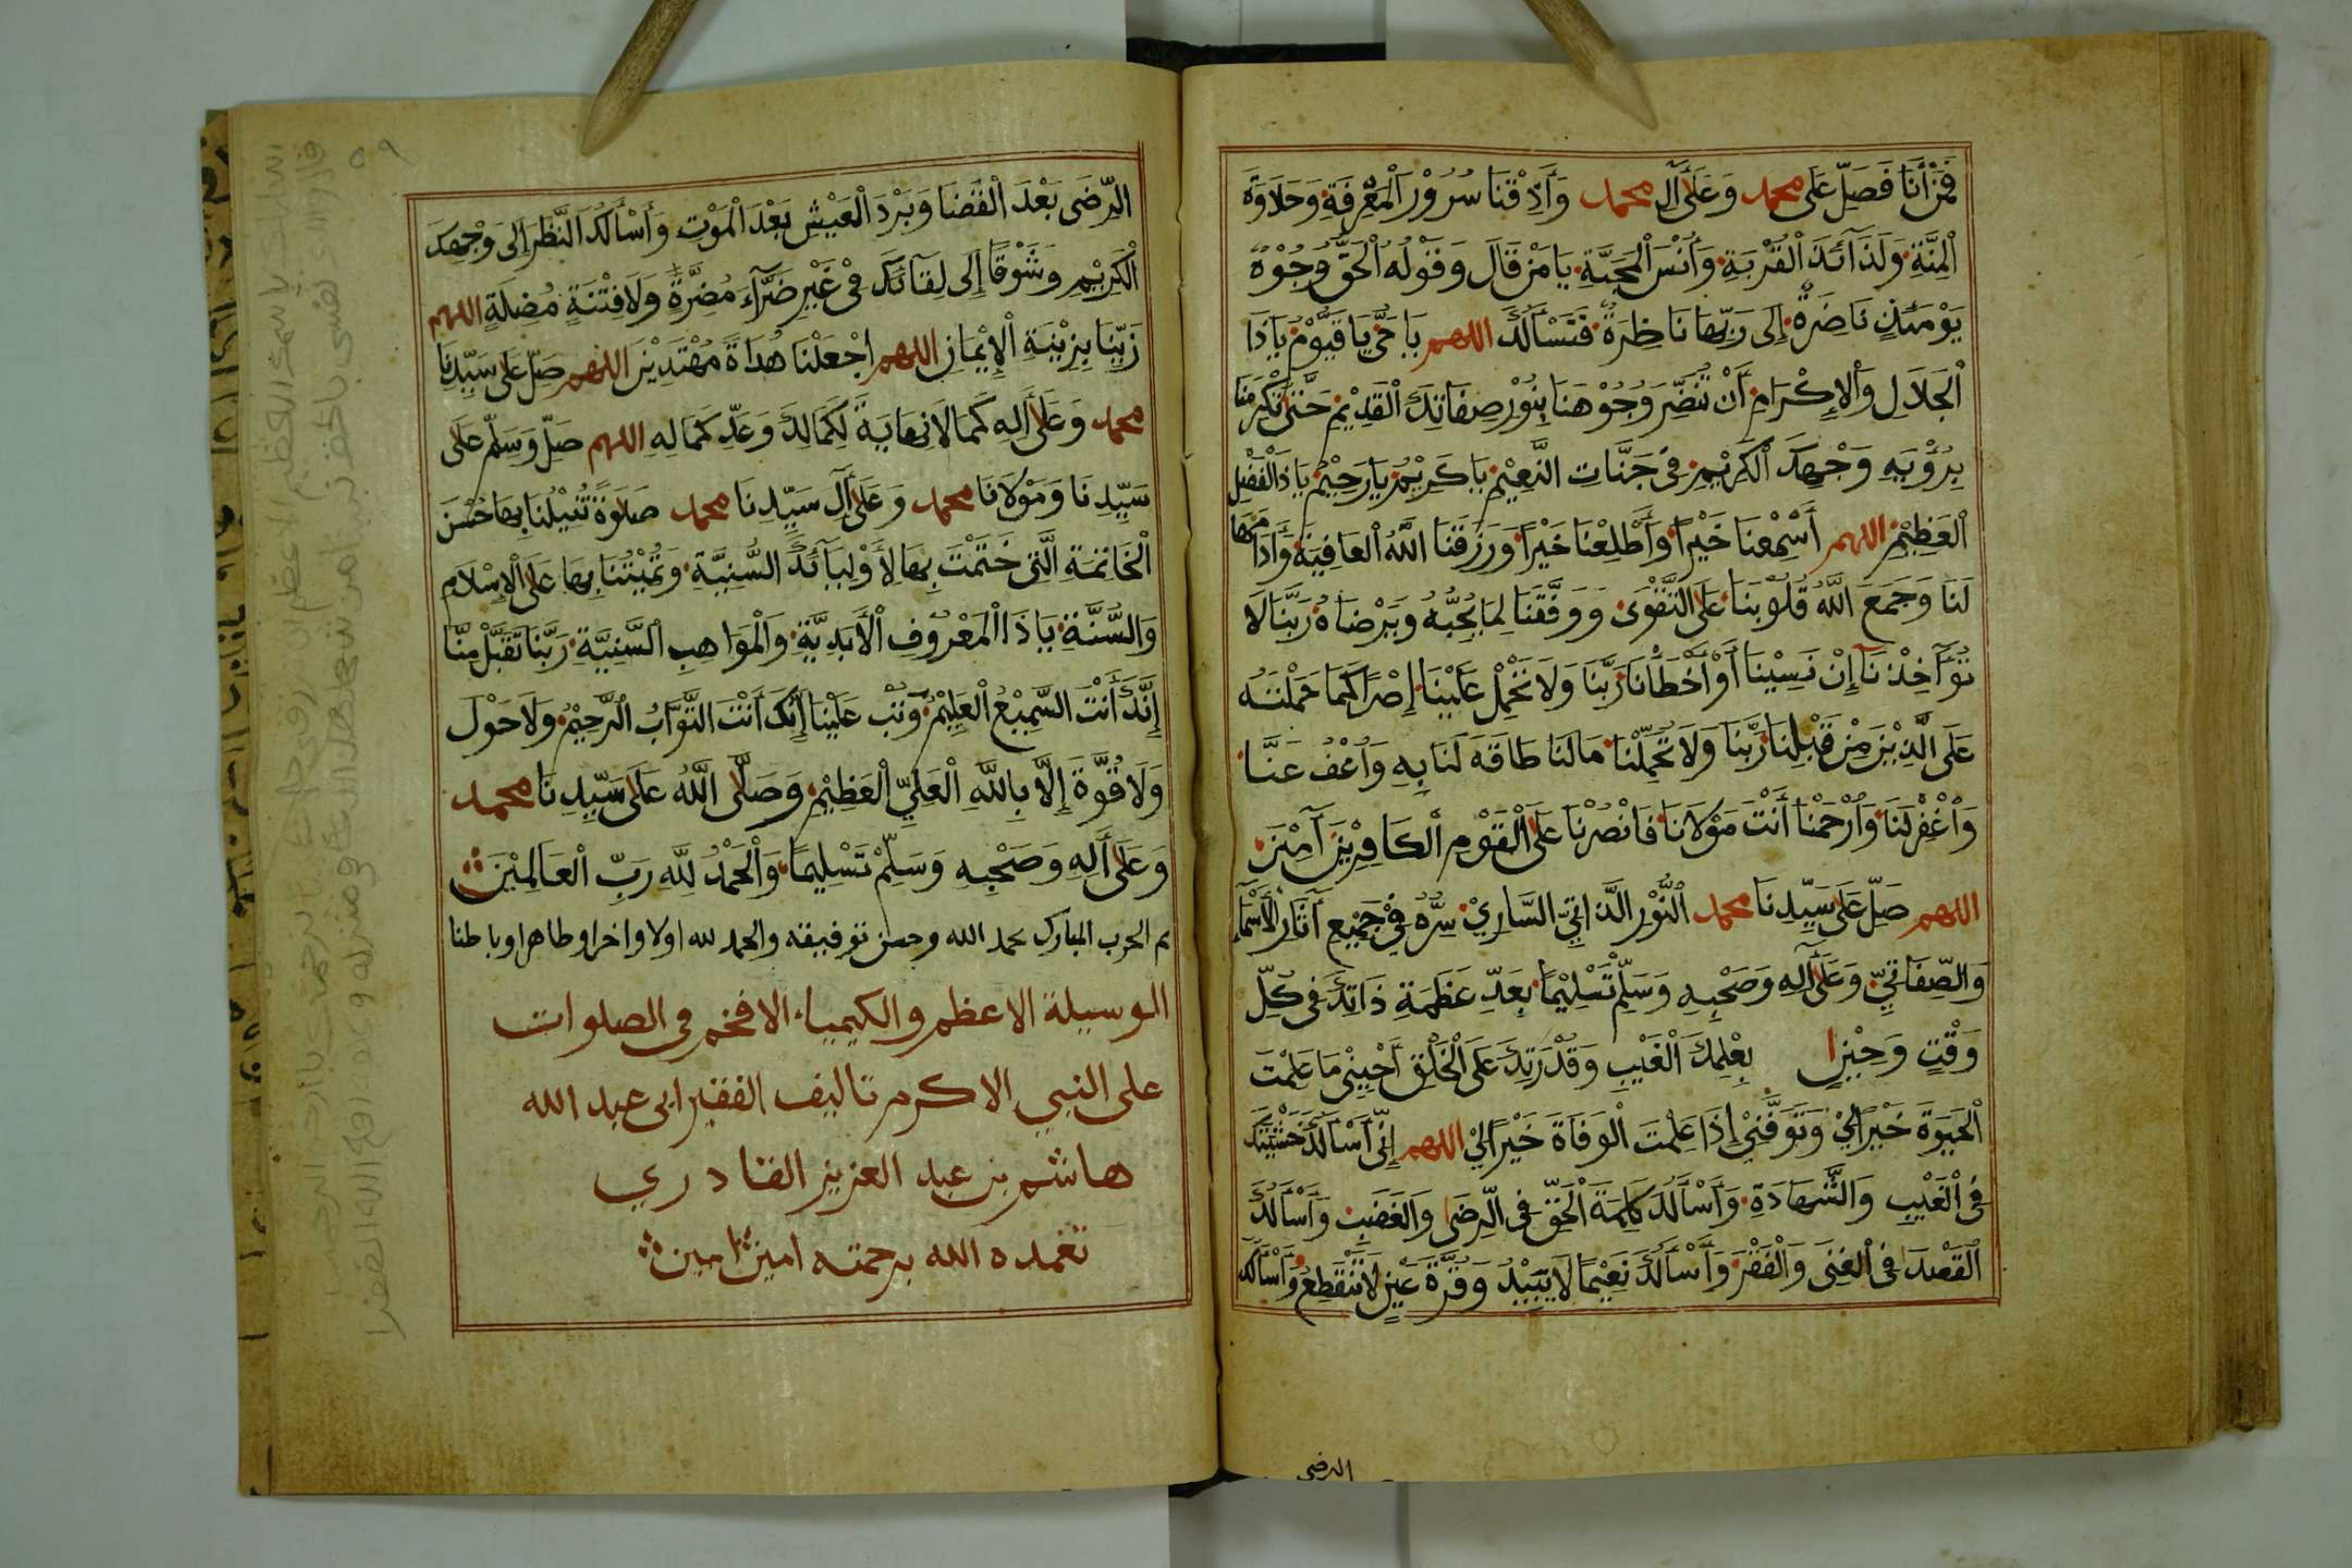 فَمَنْ أَنَا فَصَلِّ عَلَى محمد وَعَلَى آلِ محمد وَأَذِقْنَا سُرُورَ الْمَعْرِفَةِ وَحَلَاوَةَ
الْمِنَّةِ وَلَذَآئِذَ الْقُرْبَةِ وَأُنْسَ الْمَحَبَّةِ يَا مَنْ قَالَ وَقَوْلُهُ الْحَقُّ وُجُوْهٌ
يَوْمَئِذٍ نَاضِرَةٌ إِلَى رَبِّهَا نَاظِرَةٌ فَنَسْأَلُكَ اللهم يَا حَيُّ يَا قَيُّوْمُ يَا ذَا
الْجَلَالِ وَالْإِكْرَامِ أَنْ تُنَضِّرَ وُجُوْهَنَا بِنُوْرِ صِفَاتِكَ الْقَدِيْمِ حَتَّى تُكْرِمَنَا
بِرُؤْيَةِ وَجْهِكَ الْكَرِيْمِ فِي جَنَّاتِ النَّعِيْمِ يَا كَرِيْمُ يَا رَحِيْمُ يَا ذَا الْفَضْلِ
الْعَظِيْمِ اللهم أَسْمِعْنَا خَيْرًا وَأَطْلِعْنَا خَيْرًا وَرَزَقَنَا اللَّهُ الْعَافِيَةَ وَأَدَامَهَا
لَنَا وَجَمَعَ اللَّهُ قُلُوْبَنَا عَلَى التَّقْوَى وَوَفَّقَنَا لِمَا يُحِبُّهُ وَيَرْضَاهُ رَبَّنَا لَا
تُؤَآخِذْنَآ إِنْ نَسِيْنَا أَوْ أَخْطَأْنَا رَبَّنَا وَلَا تَحْمِلْ عَلَيْنَا إِصْرًا كَمَا حَمَلْتَهُ
عَلَى الَّذِيْنَ مِنْ قَبْلِنَا رَبَّنَا وَلَا تُحَمِّلْنَا مَا لَنَا طَاقَةَ لَنَا بِهِ وَاعْفُ عَنَّا
وَاغْفِرْ لَنَا وَارْحَمْنَا أَنْتَ مَوْلَانَا فَانْصُرْنَا عَلَى الْقَوْمِ الْكَافِرِيْنَ آمِيْنَ
اللهم صَلِّ عَلَى سَيِّدِنَا محمد النُّوْرِ الذَّاتِيِّ السَّارِيْ سِرُّهُ فِيْ جَمِيْعِ آثَارِ الْأَسْمَآءِ
وَالصِّفَاتِيِّ وَعَلَى آلِهِ وَصَحْبِهِ وَسَلِّمْ تَسْلِيْمًا بِعَدِّ عَظَمَةِ ذَاتِكَ فِي كُلِّ
وَقْتٍ وَحِيْنٍ بِعْلِمِكَ الْغَيْبِ وَقُدْرَتِكَ عَلَى الْخَلْقِ أَحْيِنِيْ مَا عَلِمْتَ
الْحَيٰوةَ خَيْرًا لِيْ وَتَوَفَّنِيْ إِذَا عَلِمْتَ الْوَفَاةَ خَيْرًا لِيْ اللهم إِنِّيْ أَسْأَلُكَ خَشْيَتَكَ
فِي الْغَيْبِ وَالشَّهَادَةِ وَأَسْأَلُكَ كَلِمَةَ الْحَقِّ فِي الرِّضَى وَالْغَضَبِ وَأَسْأَلُكَ
الْقَصْدَ فِي الْغِنَى وَالْفَقْرِ وَأَسْأَلُكَ نَعِيْمًا لَا يَبِيْدُ وَقُرَّةَ عَيْنٍ لَا تَنْقَطِعُ وَأَسْأَلُكَ
الرضى
٥٩
الرِّضَى بَعْدَ الْقَضَا وَبَرْدَ الْعَيْشِ بَعْدَ الْمَوْتِ وَأَسْأَلُكَ النَّظَرَ إِلَى وَجْهِكَ
الْكَرِيْمِ وَشَوْقًا إِلَى لِقَآئِكَ فِيْ غَيْرِ ضَرَّآءَ مُضِرَّةٍ وَلَا فِتْنَةٍ مُضِلَّةٍ اللهم
زَيِّنَّا بِزِيْنَةِ الْإِيْمَانِ اللهم اجْعَلْنَا هُدَاةً مُهْتَدِيْنَ اللهم صَلِّ عَلَى سَيِّدِنَا
محمد وَعَلَى آلِهِ كَمَا لَا نِهَايَةَ لِكَمَالِكَ وَعَدِّ كَمَالِهِ اللهم صَلِّ وَسَلِّمْ عَلَى
سَيِّدِنَا وَمَوْلَانَا محمد وَعَلَى آلِ سَيِّدِنَا محمد صَلٰوةً تُنِيْلُنَا بِهَا حُسْنَ
الْخَاتِمَةِ الَّتِي خَتَمْتَ بِهَا لِأَوْلِيَآئِكَ السُّنِيَّةِ وَتُمِيْتُنَا بِهَا عَلَى الْإِسْلَامِ
وَالسُّنَّةِ يَا ذَا الْمَعْرُوفِ الْأَبَدِيَّةِ وَالْمَوَاهِبِ السَّنِيَّةِ رَبَّنَا تَقَبَّلْ مِنَّا
إِنَّكَ أَنْتَ السَّمِيْعُ الْعَلِيْمُ وَتُبْ عَلَيْنَا إِنَّكَ أَنْتَ التَّوَّابُ الرَّحِيْمُ وَلَا حَوْلَ
وَلَا قُوَّةَ إِلَّا بِاللَّهِ الْعَلِيِّ الْعَظِيْمِ وَصَلَّى اللَّهُ عَلَى سَيِّدِنَا محمد
وَعَلَى آلِهِ وَصَحْبِهِ وَسَلِّمْ تَسْلِيمًا وَالْحَمْدُ لِلَّهِ رَبِّ الْعَالَمِيْنَ
تم الحزب المبارك بحمد الله وحسن توفيقه والحمد لله اولا واخرا وظاهرا وباطنا
الوسيلة الاعظم والكيمياء الافخم في الصلوات
على النبي الاكرم تاليف الفقير ابى عبد الله
هاشم بن عبد العزيز القادري
تغمده الله برحمته امين امين